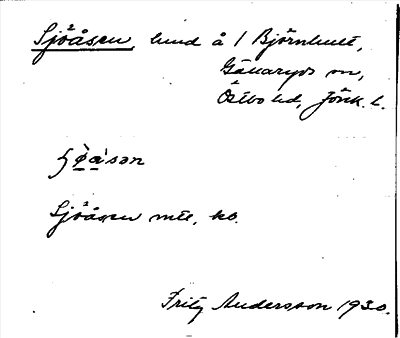 Sjöåsen, lund å 1 Björnhult,
Gällaryds sn,
Östbo hd, Jönk. l.
sön
Sjöåsen mtl, kb.
Fritz Andersson 1930.